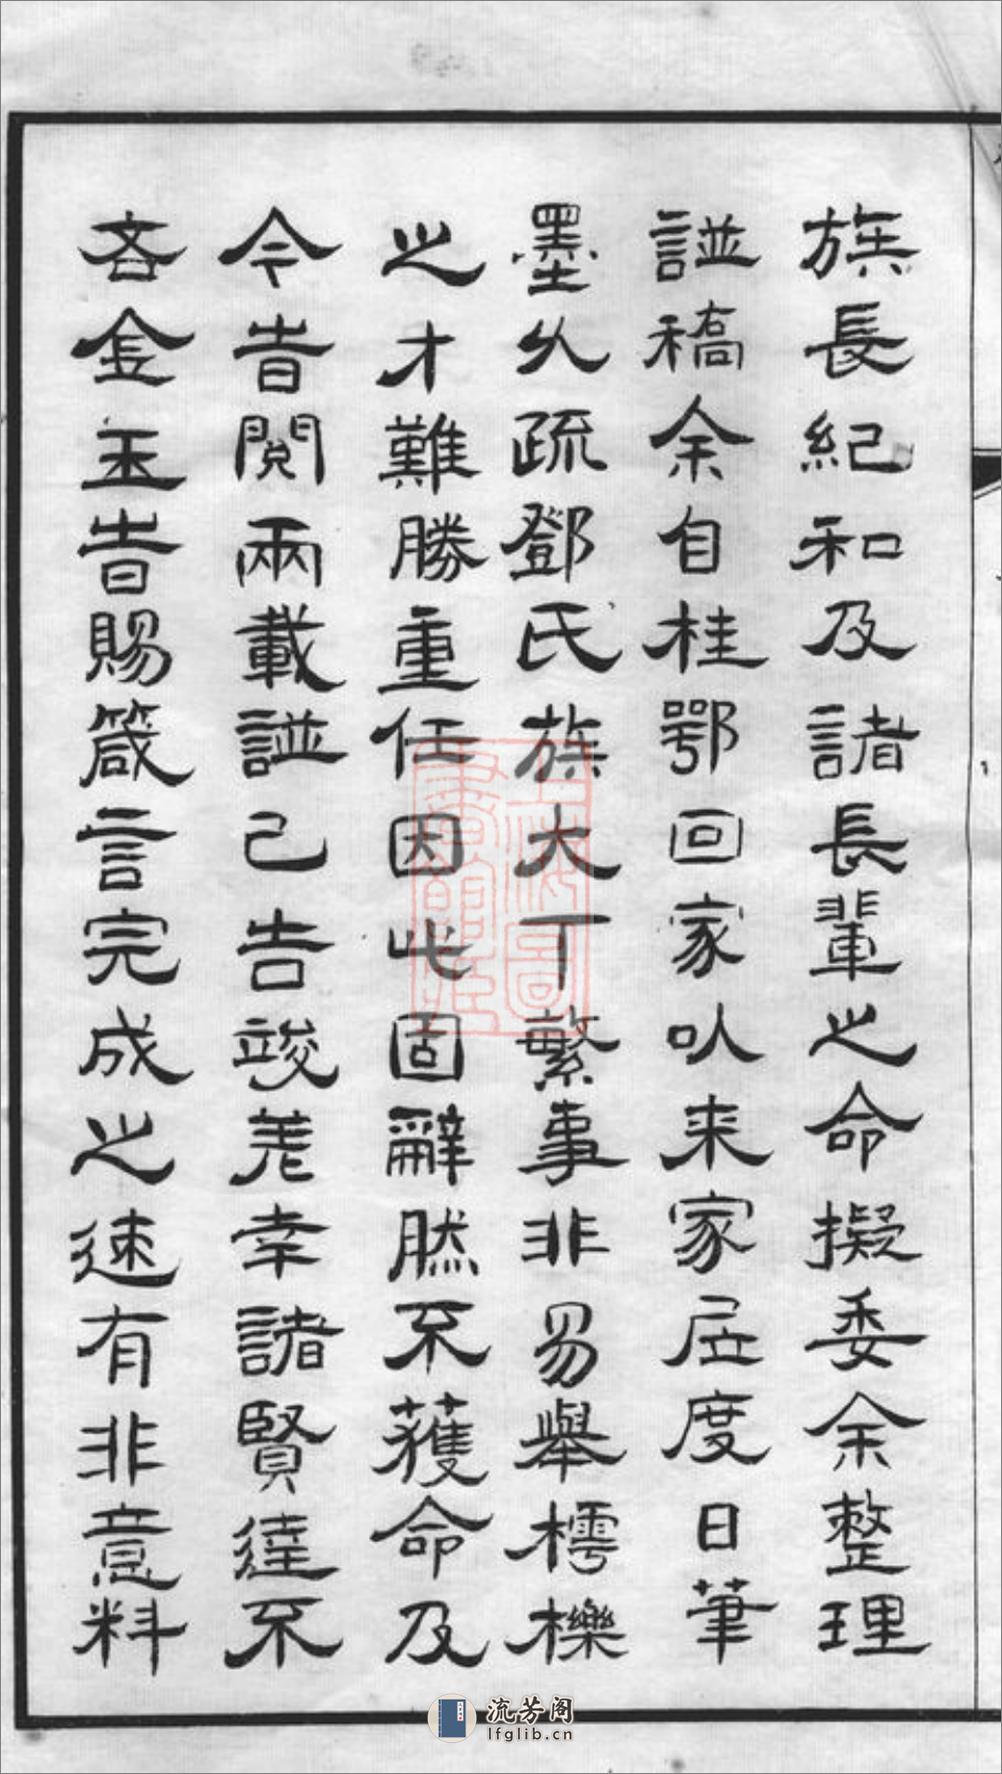 族長紀和及諸長輩之命擬委余整理
譜稿余自桂鄂回家以来家居度日筆
墨久疏鄧氏族大丁繁事非易舉樗櫟
之才難勝重任因此固辭然不獲命及
今昔閱兩載譜已告竣差幸諸賢達不
吝金玉昔賜箴言完成之速有非意料
上海圖書館藏
流芳阁
lfglib.cn